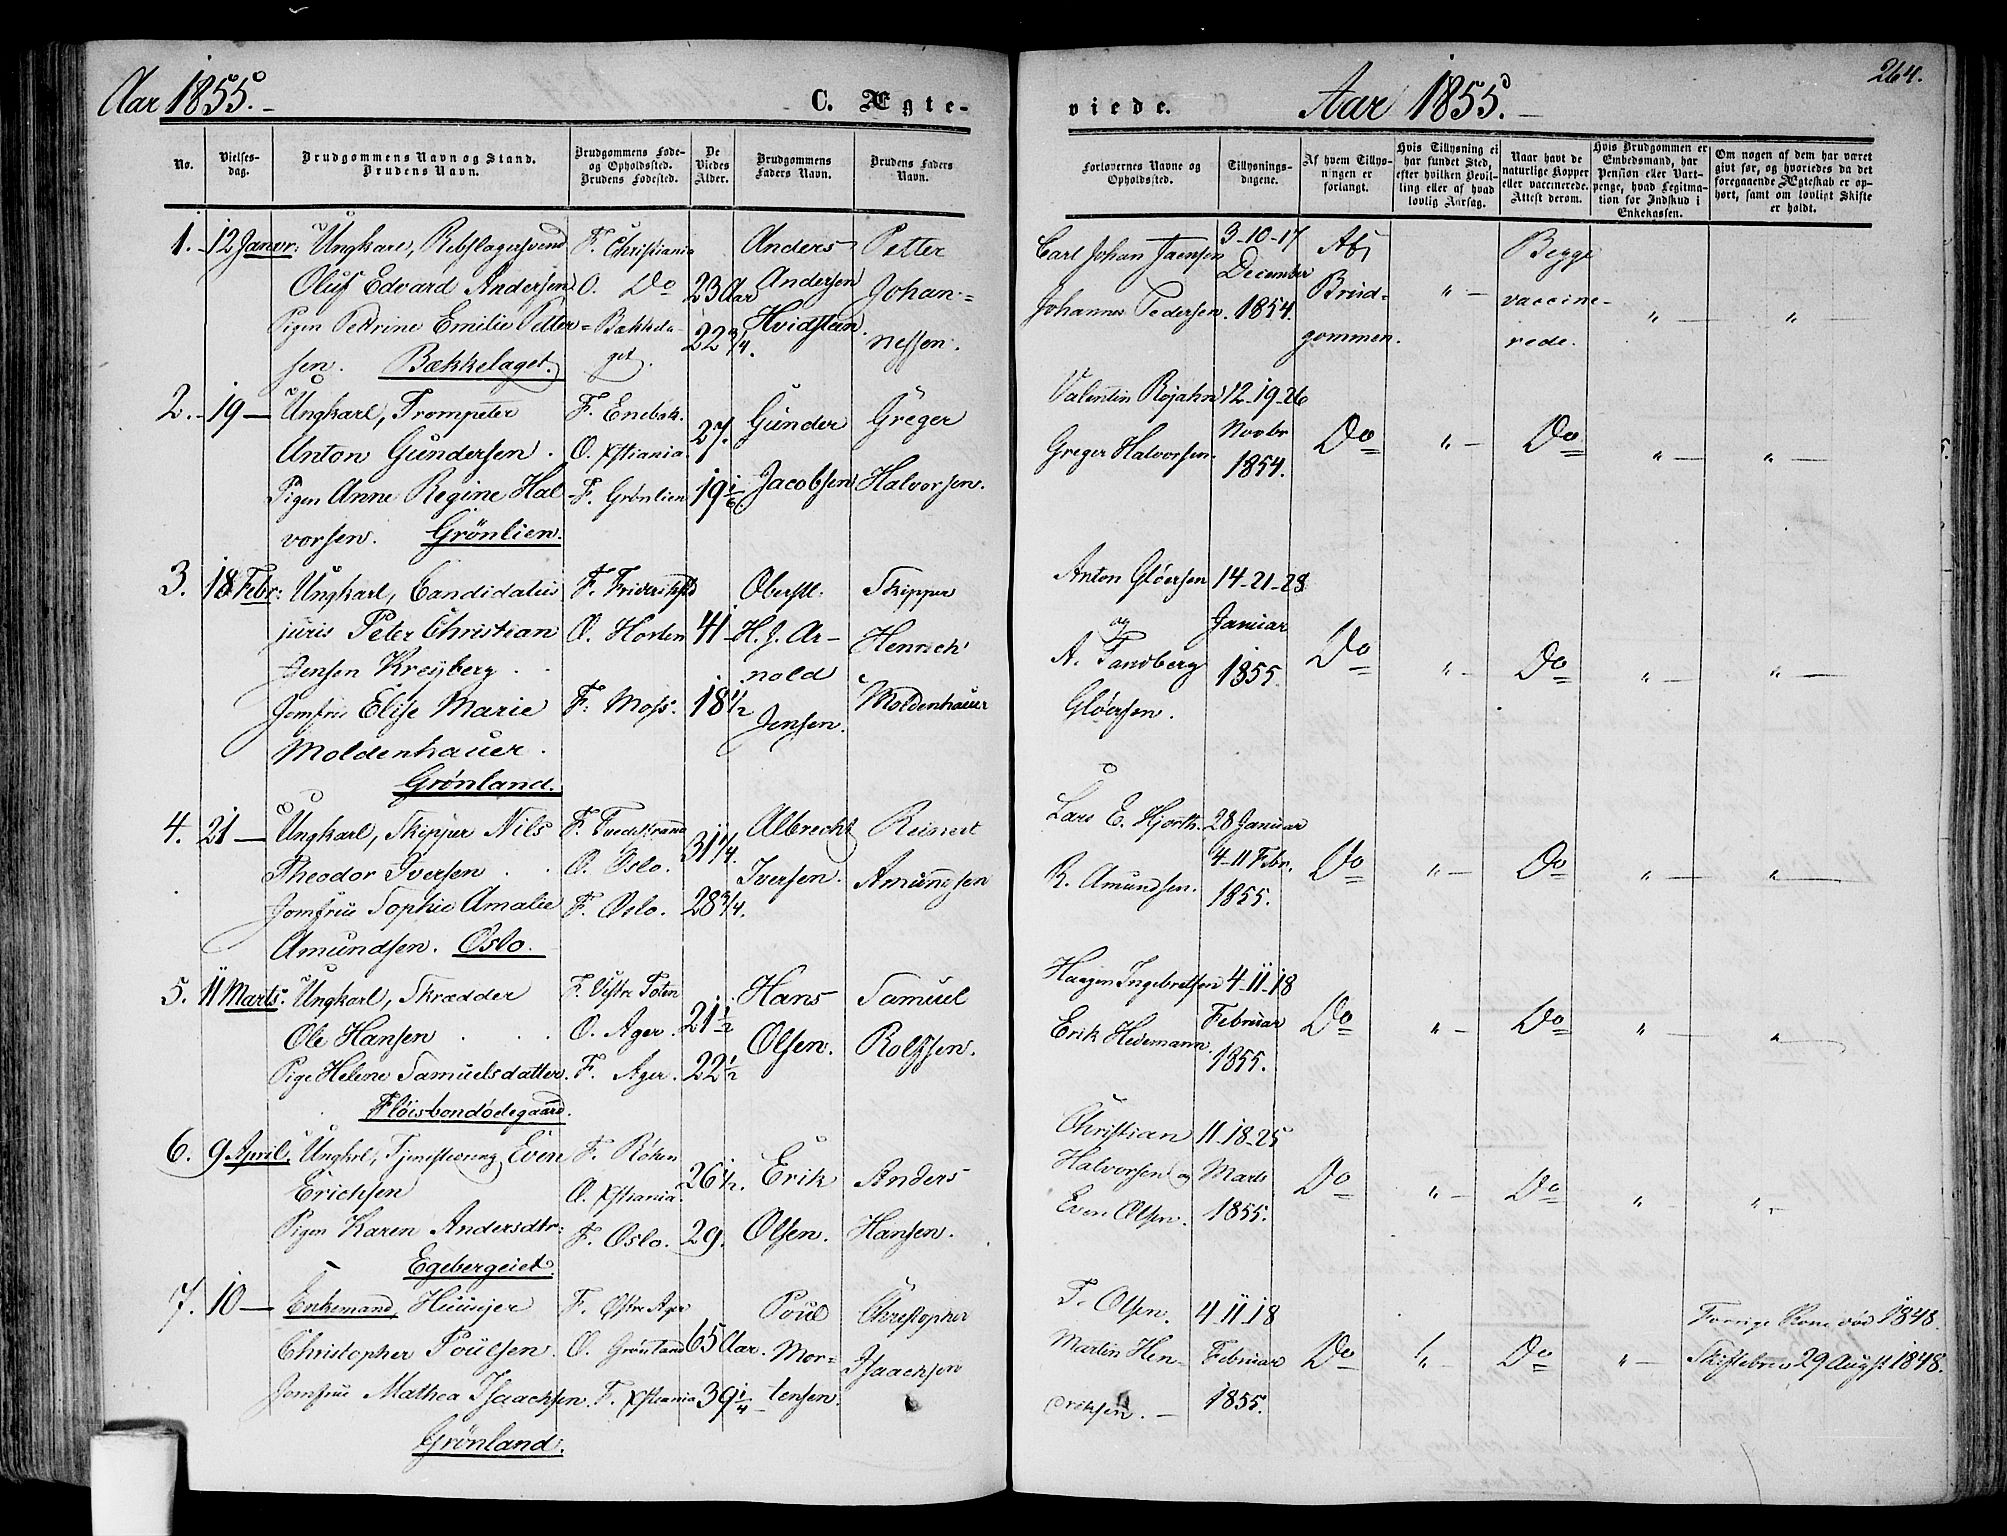 Aar 1855. C. Ægte-
No.
Vielses-
dag.
Brudgommens Navn og Stand.
Brudens Navn.
Brudgommens Føde-
og Opholdssted.
Brudens Fødested.
De
Viedes
Alder.
Brudgommens
Faders Navn.
Brudens Faders
Navn.
1. 12 Janvr: Ungkarl, Rebslagersvend F. Christiania Anders Petter
Oluf Edvard Andersen O. Do 23 Aar Andersen Johan-
Pigen Petrine Emilie Petter- Bække- 22 3/4. Hvidsteen. nessen.
sen. Bækkelaget. get.
2. 19 — Ungkarl, Trompeter F. Enebak. 27. Gunder Greger
Anton Gundersen. O. Xstiania.
Pigen Anne Regine Hal- F. Grönlien 19 1/6. Jacobsen Halvorsen.
vorsen. Grönlien.
3. 18 Febr: Ungkarl, Candidatus F. Frideriksstd Oberstl: Skipper
juris Peter Christian O. Horten 41 H. J. Ar- Henrich
Jensen Kreyberg. nold
Jomfru Elise Marie F. Moss. 18 1/2 Jensen. Moldenhauer
Moldenhauer.
Grønland.
4. 21 — Ungkarl, Skipper Nils F. Tvedestrand 31 1/4. Albrecht Reinert
Theodor Iversen. O. Oslo. Iversen. Amundsen
Jomfru Sophie Amalie F. Oslo. 28 3/4.
Amundsen. Oslo.
5. 11 Marts: Ungkarl, Skrædder F. Vestre Toten Hans Samuel
Ole Hansen O. Ager. 21 1/2 Olsen. Rolfsen.
Pige Helene Samuelsdatter. F. Ager. 22 1/2
Fløisbondødegaard.
6. 9 April. Ungkrl, Tjenestedreng Even F. Röken 26 1/2. Erik Anders
Erichsen O. Xstiania.
Pigen Karen Andersdtr: F. Oslo. 29. Olsen. Hansen.
Egebergeiet.
7. 10 — Enkemand, Huuseier F. Østre Ager Poul Christopher
Christopher Poulsen. O. Grønland 65 Aar. Mor- Isaachsen
Jomfru Mathea Isaachsen. F. Xstiania 39 1/4 tensen.
Grönland.
viede. Aar 1855. 264.
Forlovernes Navne og
Opholdssted.
Tillysnings-
dagene.
Af hvem Tillys-
ningen er
forlangt.
Hvis Tillysning ei
har fundet Sted,
efter hvilken Bevil-
ling eller af hvad
lovlig Aarsag.
Naar havt de
naturlige Kopper
eller vaccinerede.
Attest derom.
Hvis Brudgommen er
Embedsmand, har
Pension eller Vart-
penge, hvad Legitima-
tion for Indskud i
Enkekassen.
Om nogen af dem har været
givt før, og hvorledes da det
foregaaende Ægteskab er op-
hørt, samt om lovligt Skifte
er holdt.
Carl Johan Jaensen 3-10-17 Af Begge
December Brud- " — vaccine-
Johannes Pedersen. 1854. gommen. rede. " — " —
Valentin Rojahn 12-19-26
Novbr Do " — Do
Greger Halvorsen. 1854. " — " —
Anton Glöersen 14-21-28
og Januar Do " — Do " — " —
A. Tandberg 1855.
Glöersen.
Lars E. Hjorth. 28 Januar
4-11 Febr. Do " — Do " — " —
R. Amundsen. 1855.
Haagen Ingebretsen 4-11-18
Februar Do " — Do " — " —
Erik Hedemann. 1855.
Christian 11-18-25
Halvorsen og Marts Do " — Do " — " —
Even Olsen. 1855.
T. Olsen. 4-11-18 Forrige Kone død 1848.
Martin Hen- Februar Do " — Do " — Skiftebrev 29 Augst 1848.
driksen. — 1855.